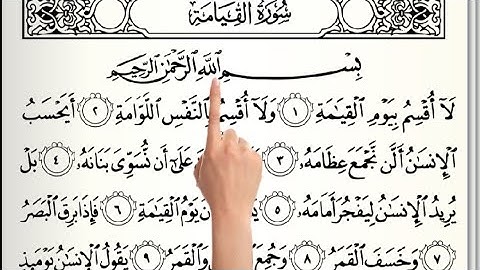 سُورَةُ الْقِيَامَةِ
بِسْمِ اللَّهِ الرَّحْمَٰنِ الرَّحِيمِ
لَا أُقْسِمُ بِيَوْمِ الْقِيَامَةِ ١ وَلَا أُقْسِمُ بِالنَّفْسِ اللَّوَّامَةِ ٢ أَيَحْسَبُ
الْإِنسَانُ أَلَّن نَّجْمَعَ عِظَامَهُ ٣ عَلَىٰ أَن نُّسَوِّيَ بَنَانَهُ ٤ بَلْ
يُرِيدُ الْإِنسَانُ لِيَفْجُرَ أَمَامَهُ ٥ يَوْمُ الْقِيَامَةِ ٦ فَإِذَا بَرِقَ الْبَصَرُ
٧ وَخَسَفَ الْقَمَرُ ٨ وَجُمِعَ وَالْقَمَرُ ٩ يَقُولُ الْإِنسَانُ يَوْمَئِذٍ